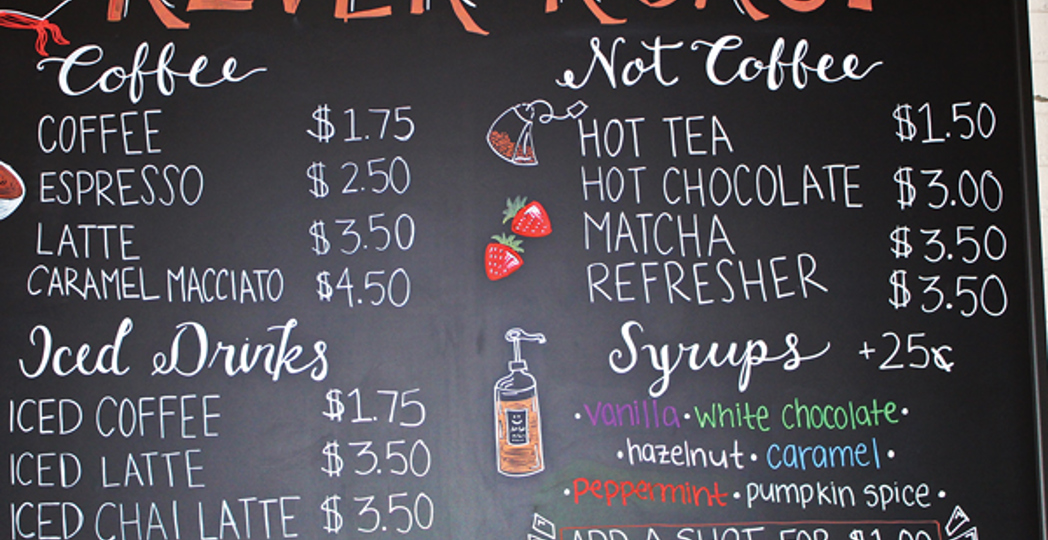 RIVER ROAST
Coffee
COFFEE $1.75
ESPRESSO $2.50
LATTE $3.50
CARAMEL MACCIATO $4.50
Iced Drinks
ICED COFFEE $1.75
ICED LATTE $3.50
ICED CHAI LATTE $3.50
Not Coffee
HOT TEA $1.50
HOT CHOCOLATE $3.00
MATCHA $3.50
REFRESHER $3.50
Syrups +25¢
•vanilla•white chocolate•
•hazelnut•caramel•
•peppermint•pumpkin spice•
ADD A SHOT FOR $1.00